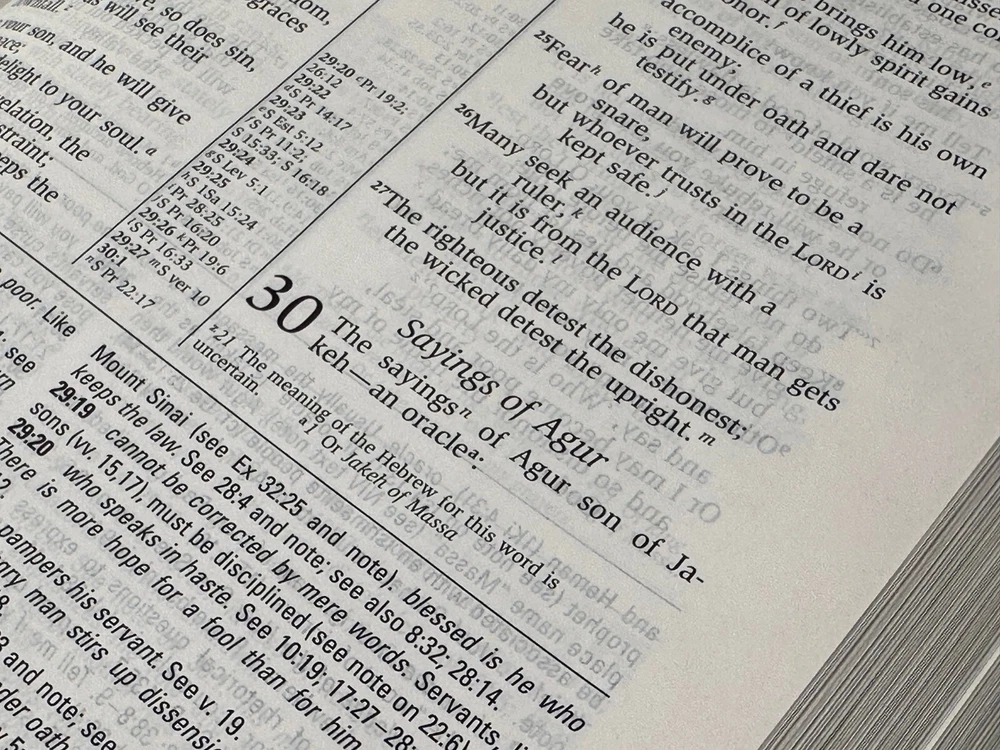 so does sin,
graces
as will see their
your son, and he will give
delight to your soul. a
the
straint;
29:20 c Pr 19:2;
26:12
29:22
d S Pr 14:17
29:23
e S Est 5:12
f S Pr 11:2;
S 15:33; S 16:18
29:24
g S Lev 5:1
29:25
h S 1Sa 15:24
i Pr 28:25
j S Pr 16:20
29:26 k Pr 19:6
l S Pr 16:33
29:27 m S ver 10
30:1
n S Pr 22:17
brings him low, e
of lowly spirit gains
honor. f
accomplice of a thief is his own
enemy;
he is put under oath and dare not
testify. g
25 Fear h of man will prove to be a
snare,
but whoever trusts in the LORD i is
kept safe. j
26 Many seek an audience with a
ruler, k
but it is from the LORD that man gets
justice. l
27 The righteous detest the dishonest;
the wicked detest the upright. m
Sayings of Agur
30 The sayings n of Agur son of Ja-
keh—an oracle a:
z 21 The meaning of the Hebrew for this word is
uncertain. a 1 Or Jakeh of Massa
poor. Like
see
Mount Sinai (see Ex 32:25 and note). blessed is he who
keeps the law. See 28:4 and note; see also 8:32; 28:14.
29:19 cannot be corrected by mere words. Servants,
sons (vv. 15,17), must be disciplined (see note on 22:6)
29:20 who speaks in haste. See 10:19; 17:27-28;
There is more hope for a fool than for him
pampers his servant. See v. 19.
man stirs up
and note; see
under oath